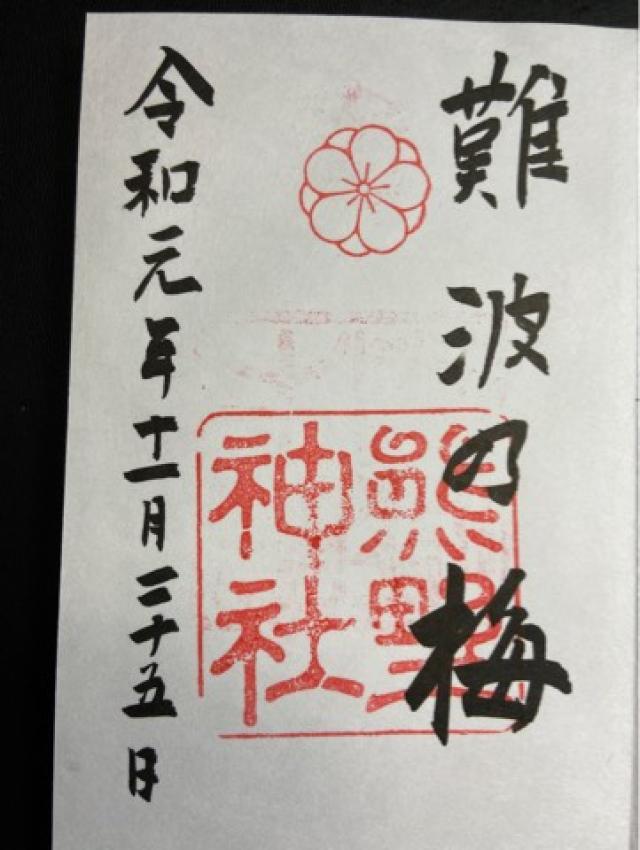 難波の梅
熊野
神社
令和元年十一月二十五日